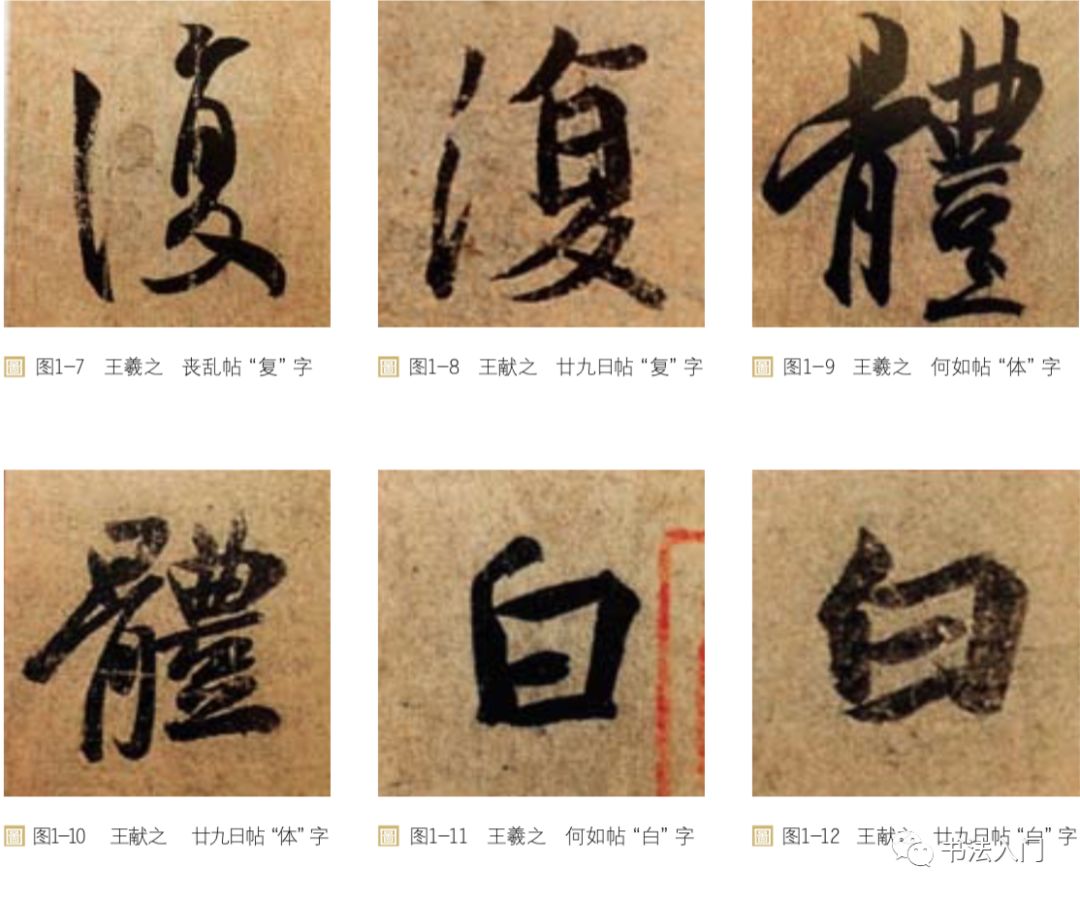 復 復 體
圖 图1-7 王羲之 丧乱帖“复”字 圖 图1-8 王献之 廿九日帖“复”字 圖 图1-9 王羲之 何如帖“体”字
體 白 白
圖 图1-10 王献之 廿九日帖“体”字 圖 图1-11 王羲之 何如帖“白”字 圖 图1-12 王献之 廿九日帖“白”字
书法入门